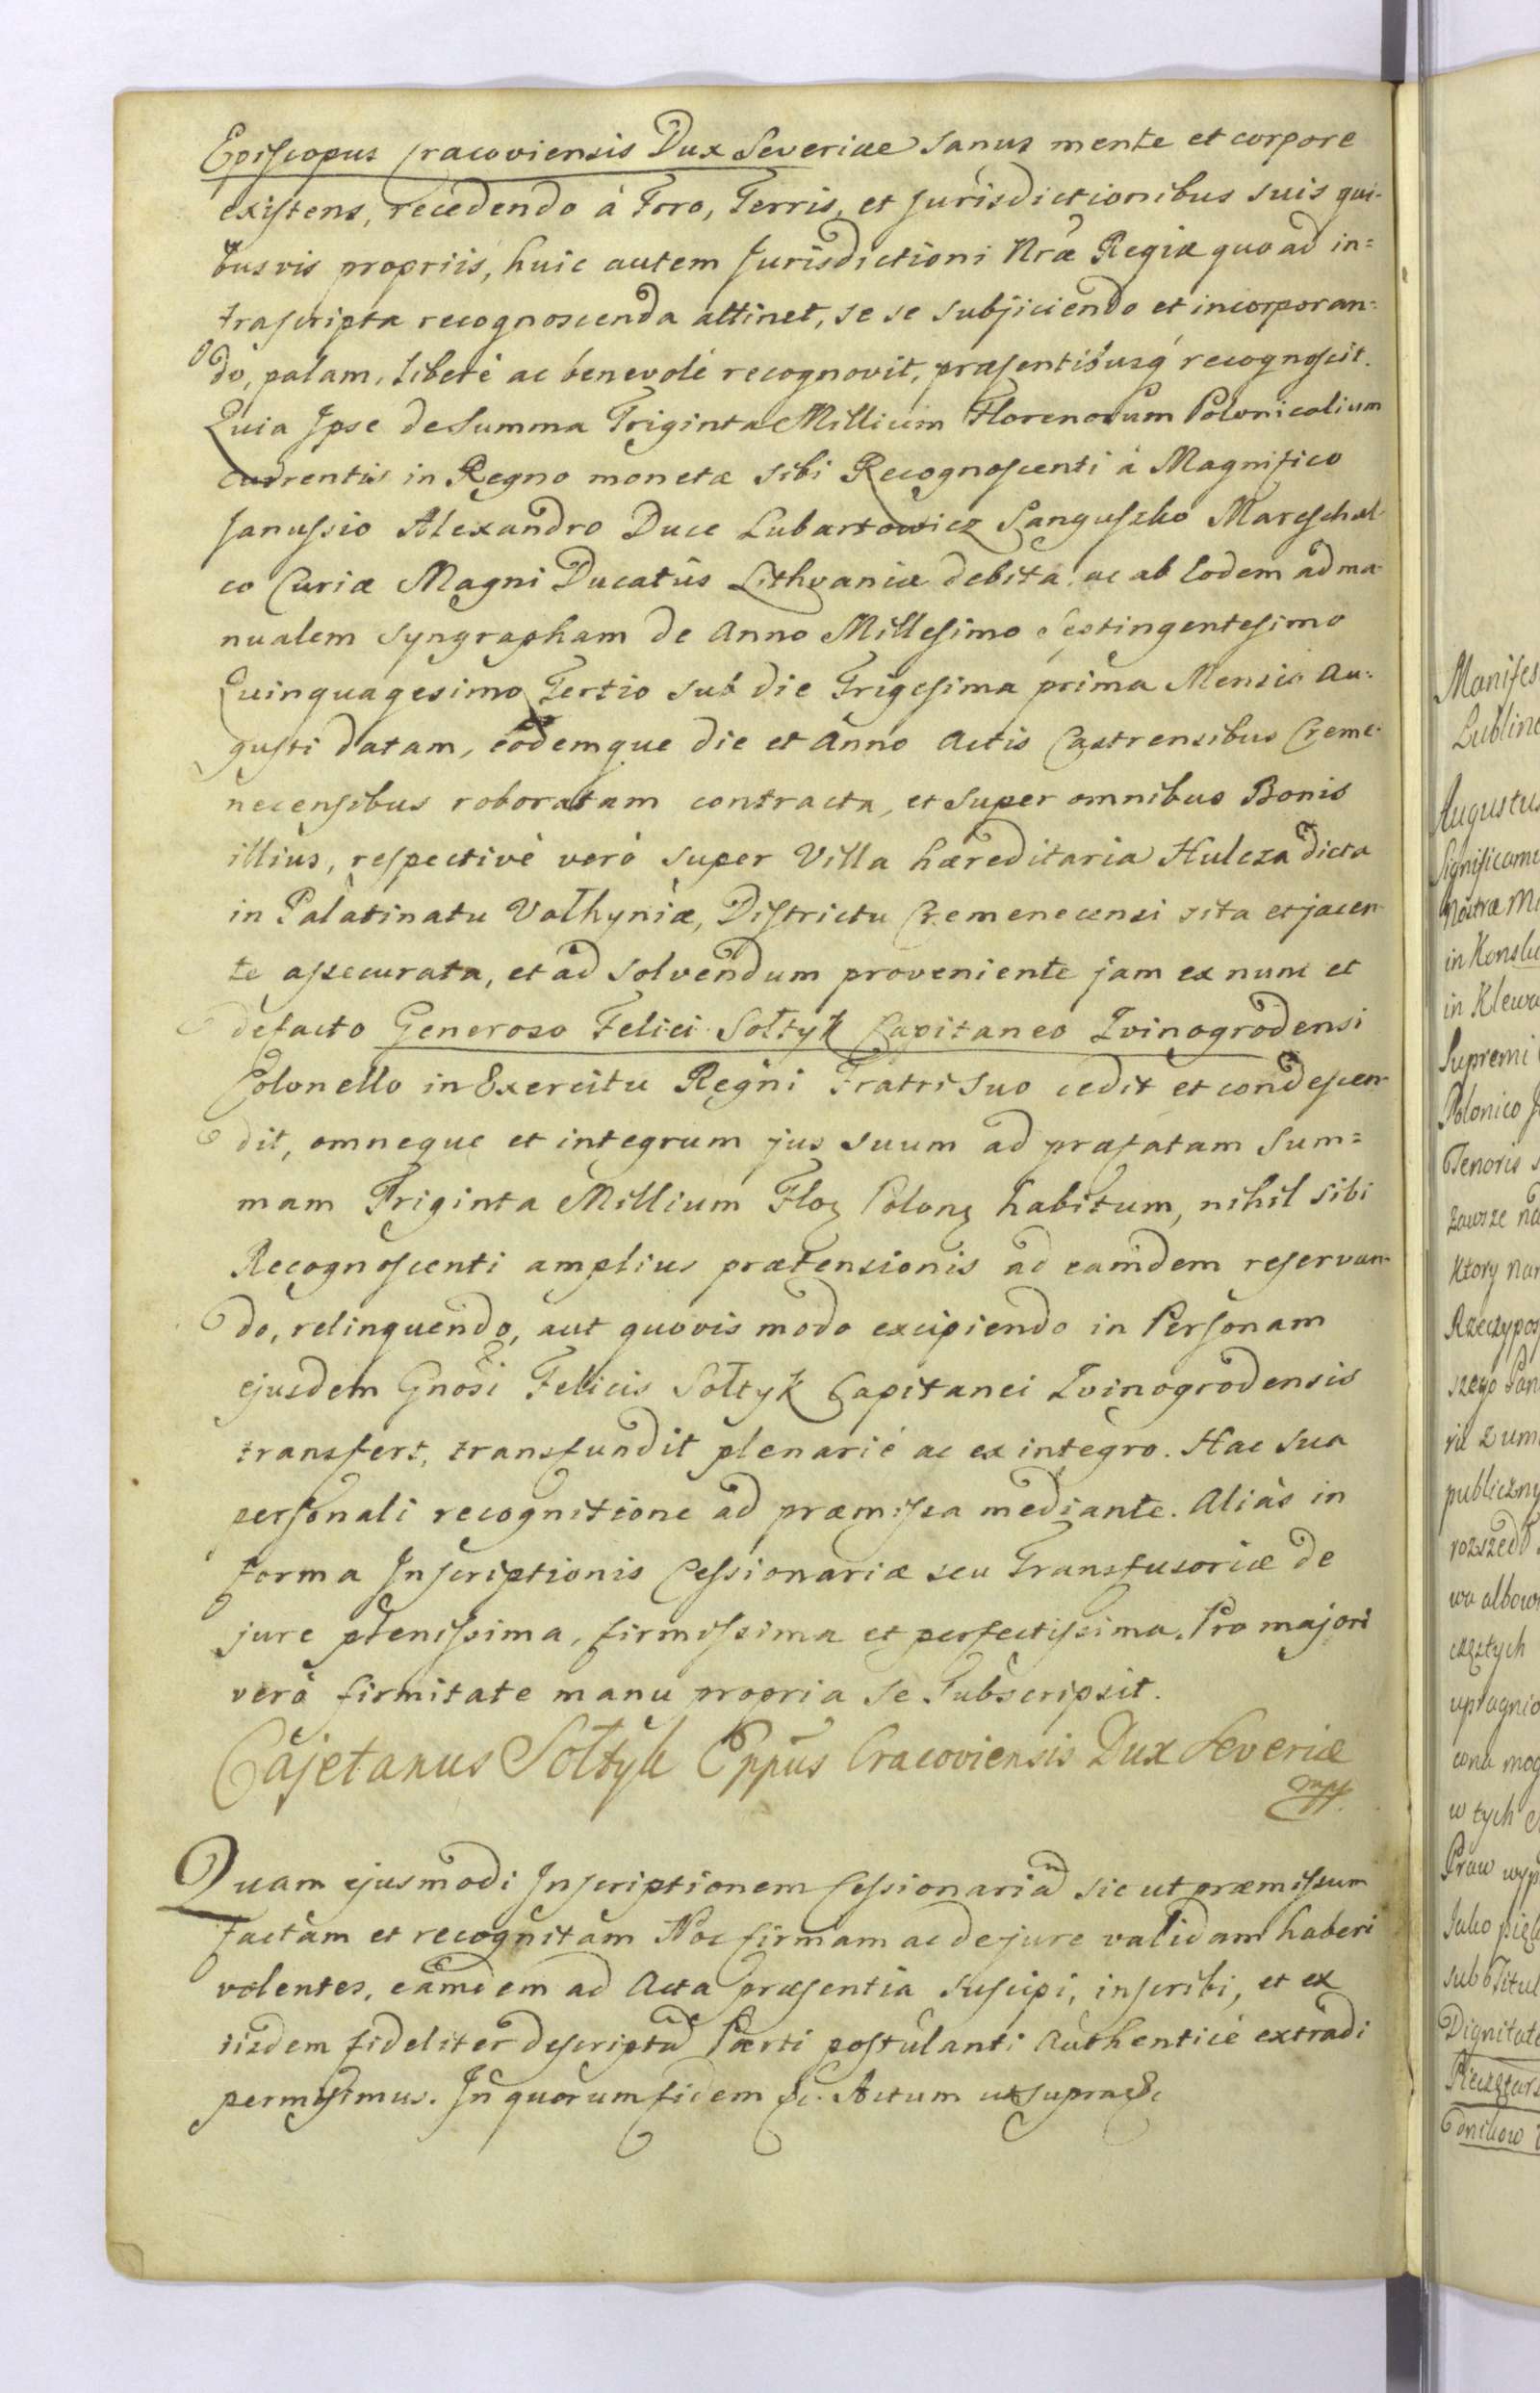 Episcopus Cracoviensis Dux Severiae sanus mente et corpore
existens, recedendo à Foro, Terris, et Jurisdictionibus suis qui-
busvis propriis, huic autem Jurisdictioni Nræ Regiæ quo ad in=
trascripta recognoscenda attinet, se se subjiciendo et incorporan=
do, palam, liberè ac benevolè recognovit, præsentibusq́ recognoscit.
Quia Ipse de Summa Triginta Millium Florenorum Polonicalium
currentis in Regno monetæ sibi Recognoscenti à Magnifico
Janussio Alexandro Duce Lubartowicz Sanguszko Mareschal
co Curiæ Magni Ducatûs Lithvaniæ debita, ac ab Eodem ad ma-
nualem Syngrapham de Anno Millesimo Septingentesimo
Quinquagesimo Tertio sub die Trigesima prima Mensis Au=
gusti datam, eòdemque die et Anno Actis Castrensibus Creme-
necensibus roboratam contracta, et super omnibus Bonis
illius, respectivè verò super Villa hæreditaria Hulcza dicta
in Palatinatu Volhyniæ, Districtu Cremenecensi sita et jacen-
te assecurata, et ad solvendum proveniente jam ex nunc et
defacto Generoso Felici Sołtyk Capitaneo Zvinogrodensi
Colonello in Exercitu Regni Fratri suo cedit et condescen-
dit, omneque et integrum jus suum ad præfatam Sum=
mam Triginta Millium Floꝝ Polonꝝ habitum, nihil sibi
Recognoscenti amplius prætensionis ad eamdem reservan-
do, relinquendo, aut quovis modo excipiendo in Personam
ejusdem Gnosi Felicis Sołtyk Capitanei Zvinogrodensis
transfert, transfundit plenariè ac ex integro. Hac sua
personali recognitione ad præmissa mediante. Aliàs in
forma Inscriptionis Cessionariæ seu Transfusoriæ de
jure plenissima, firmissima et perfectissima. Pro majori
verò firmitate manu propria se Subscripsit.
Cajetanus Sołtyk Eppus Cracoviensis Dux Severiæ
mpp.
Quam ejusmodi Inscriptionem Cessionariam sic ut præmissum
factam et recognitam Nos firmam ac de jure validam haberi
volentes, eamdem ad Acta præsentia suscipi, inscribi, et ex
iisdem fideliter descriptam Parti postulanti Authenticè extradi
permisimus. In quorum fidem &c. Actum ut supra &c
Manifes
Lublin
Augustus
Significam
Nostræ M
in Klewa
Supremi
Polonico
Tenoris
zawsze
Ktory
Rzeczypos
szego
publiczny
rozszedł
czystych
w tych
Praw
Jako
sub Titul
Dignitate